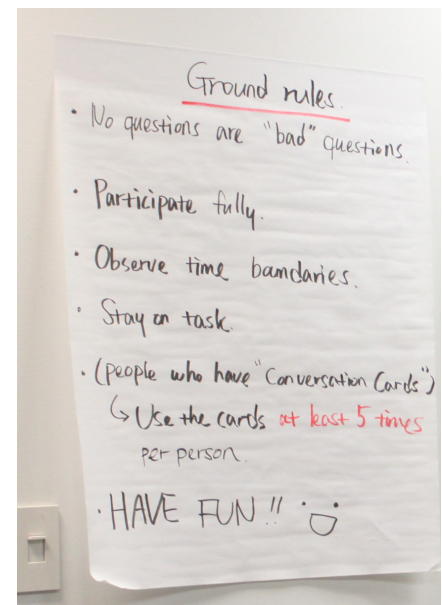 Ground rules.
• No questions are "bad" questions.
• Participate fully.
• Observe time bamdaries.
• Stay on task.
• (people who have "Conversation Cards")
↳ Use the cards at least 5 times
per person.
• HAVE FUN !!